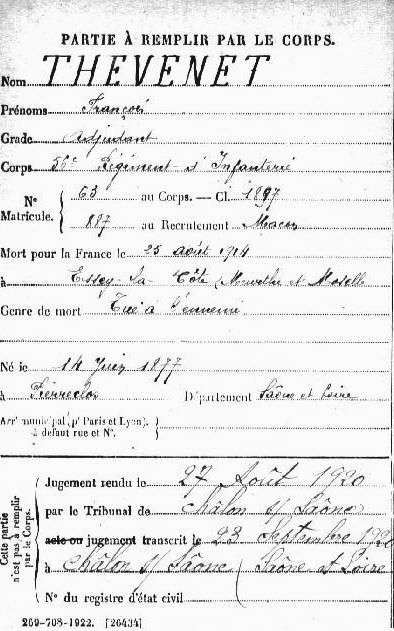 PARTIE À REMPLIR PAR LE CORPS.
Nom THEVENET
Prénoms François
Grade Adjudant
Corps 56e Régiment d'Infanterie
N° Matricule. { 63 au Corps. — Cl. 1897
887 au Recrutement Macon
Mort pour la France le 25 août 1914
à Essey-la-Côte (Meurthe et Moselle
Genre de mort Tué à l'ennemi
Né le 14 Juin 1877
à Pierreclos Département Saône et Loire
Arrt municipal (pr Paris et Lyon), à défaut rue et N°. }
Cette partie n'est pas à remplir par le Corps.
Jugement rendu le 27 Août 1920
par le Tribunal de Châlon s/ Saône
acte ou jugement transcrit le 23 Septembre 1920
à Châlon s/ Saône (Saône et Loire
N° du registre d'état civil
269-708-1922. [26434]